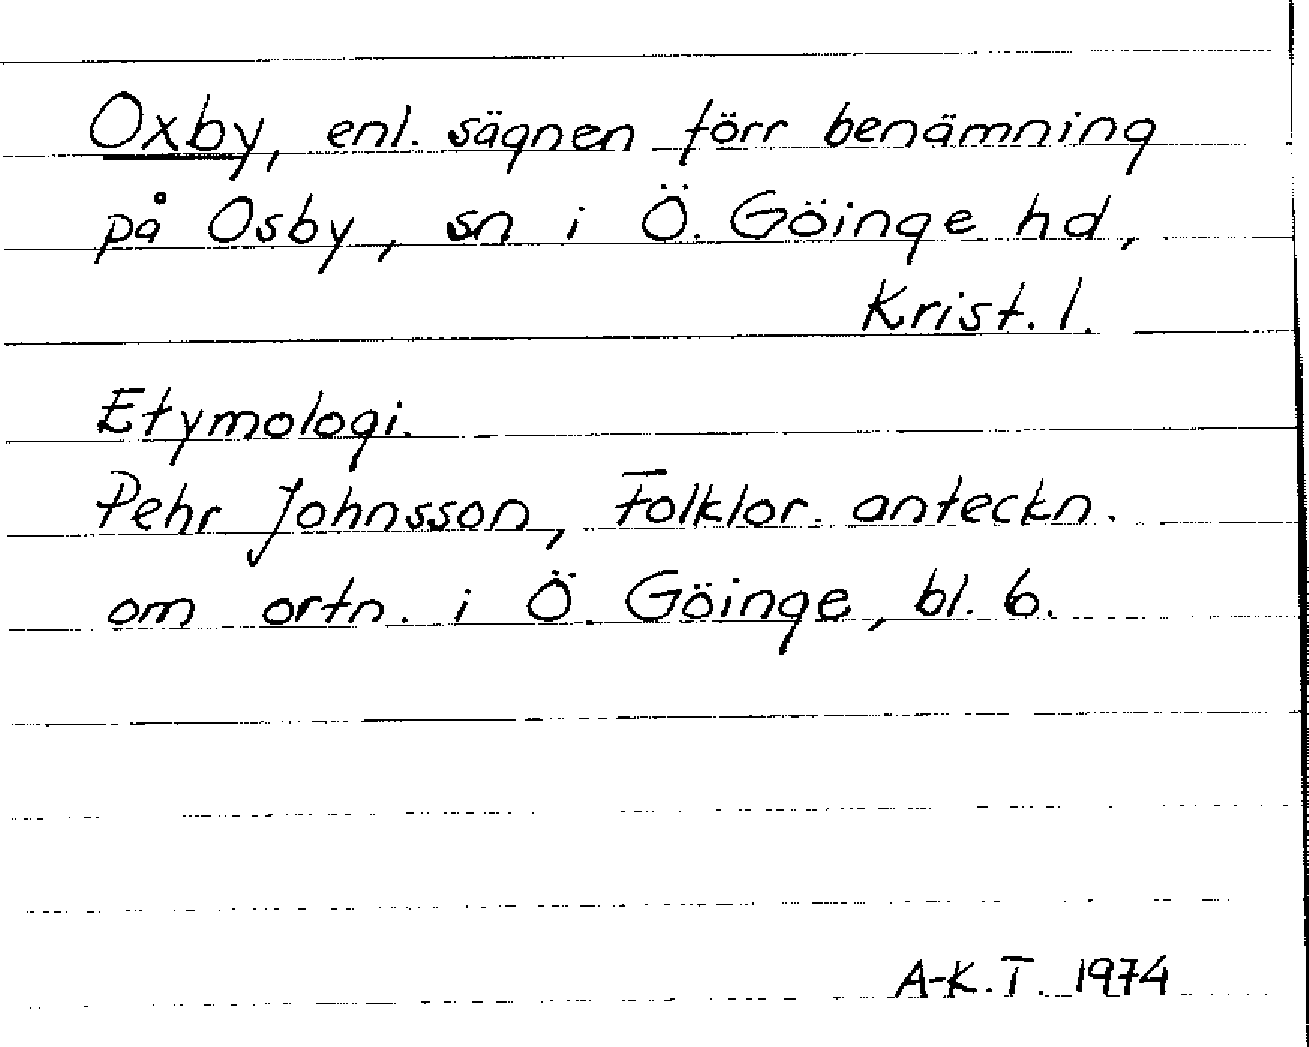 Oxby, enl. sägnen förr benämning
på Osby, sn i Ö. Göinge hd,
Krist. l.
Etymologi.
Pehr Johnsson, Folklor. anteckn.
om ortn. i Ö. Göinge, bl. 6.
A-K.T. 1974